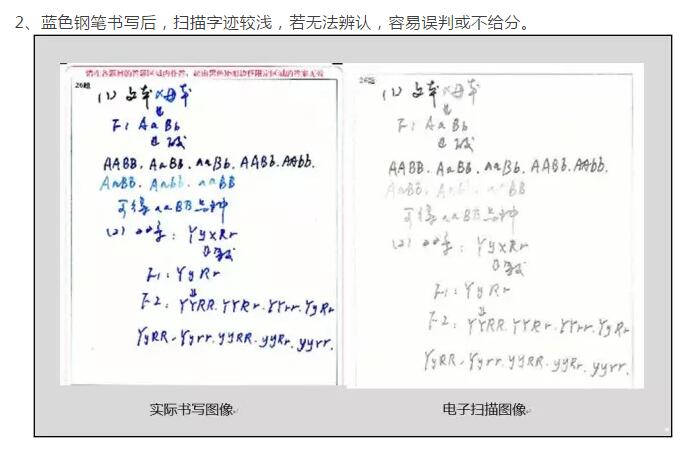 2、蓝色钢笔书写后，扫描字迹较浅，若无法辨认，容易误判或不给分。
请在各题目的答题区域内作答，超出黑色矩形边框限定区域的答案无效
26题
(1) 父本 × 母本
F1 AaBb
AABB. AaBb. aaBb. AABb. AAbb.
AaBB. Aabb. aaBB
可得aaBB品种
(2) : YyxRr
F1: YyRr
F2: YYRR. YYRr. YYrr. YyRr
YyRR. Yyrr. yyRR. yyRr. yyrr.
26题
(1) 父本 × 母本
F1 AaBb
AABB. AaBb. aaBb. AABb. AAbb.
AaBB. Aabb. aaBB
可得aaBB品种
(2) : YyxRr
F1: YyRr
F2: YYRR. YYRr. YYrr. YyRr
YyRR. Yyrr. yyRR. yyRr. yyrr.
实际书写图像
电子扫描图像